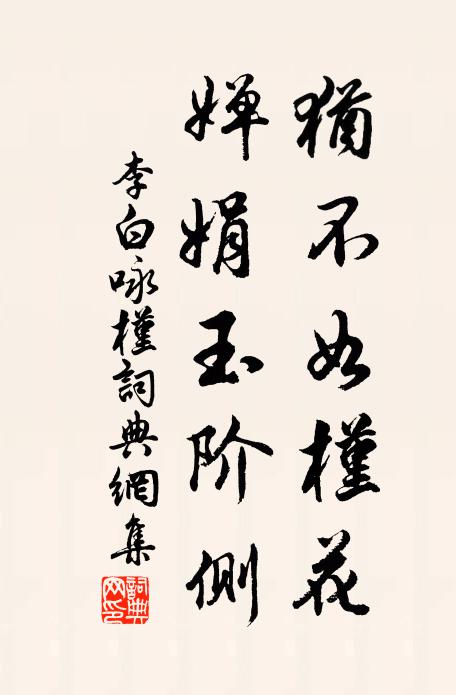 猶不如槿花
婵娟玉阶側
李白咏槿詞典網集
詞典网印